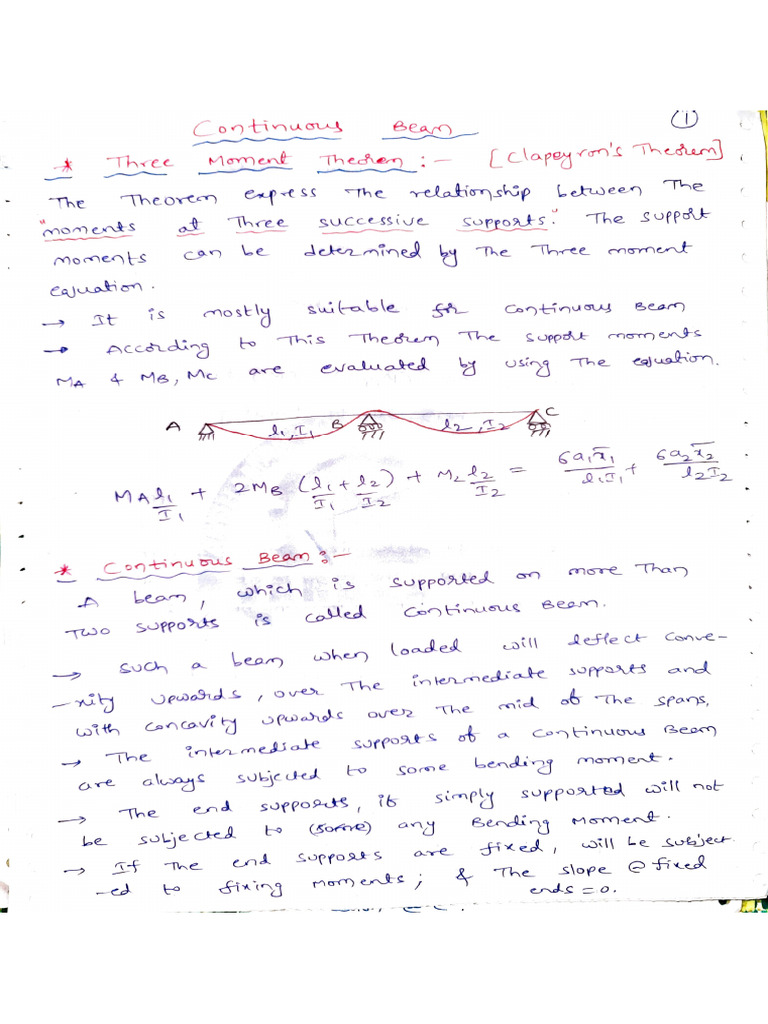 Continuous Beam
①
* Three Moment Theorem :- [Clapeyron's Theorem]
The Theorem express The relationship between The
"moments at Three successive supports." The support
moments can be determined by The Three moment
equation.
→ It is mostly suitable for continuous Beam
→ According to This Theorem The support moments
MA & MB, MC are evaluated by using The equation.
A l1, I1 B l2, I2 C
MA l1/I1 + 2MB (l1/I1 + l2/I2) + M2 l2/I2 = 6a1x̄1/l1I1 + 6a2x̄2/l2I2
* Continuous Beam :-
A beam, which is supported on more Than
Two supports is called continuous Beam.
→ such a beam when loaded will deflect conve-
-xity upwards, over The intermediate supports and
with concavity upwards over The mid of The spans.
→ The intermediate supports of a continuous Beam
are always subjected to some bending moment.
→ The end supports, if simply supported will not
be subjected to (some) any Bending Moment.
→ If The end supports are fixed, will be subject
-ed to fixing moments; & The slope @ fixed
ends = 0.